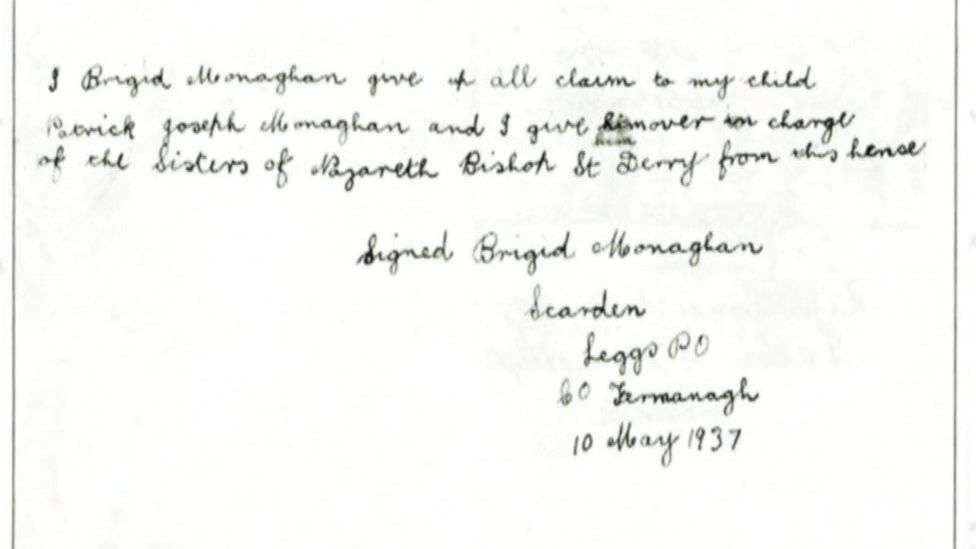 I Brigid Monaghan give up all claim to my child
Patrick Joseph Monaghan and I give him over in charge
him
of the Sisters of Nazareth Bishop St Derry from this hense
Signed Brigid Monaghan
Scarden
Leggs PO
CO Fermanagh
10 May 1937